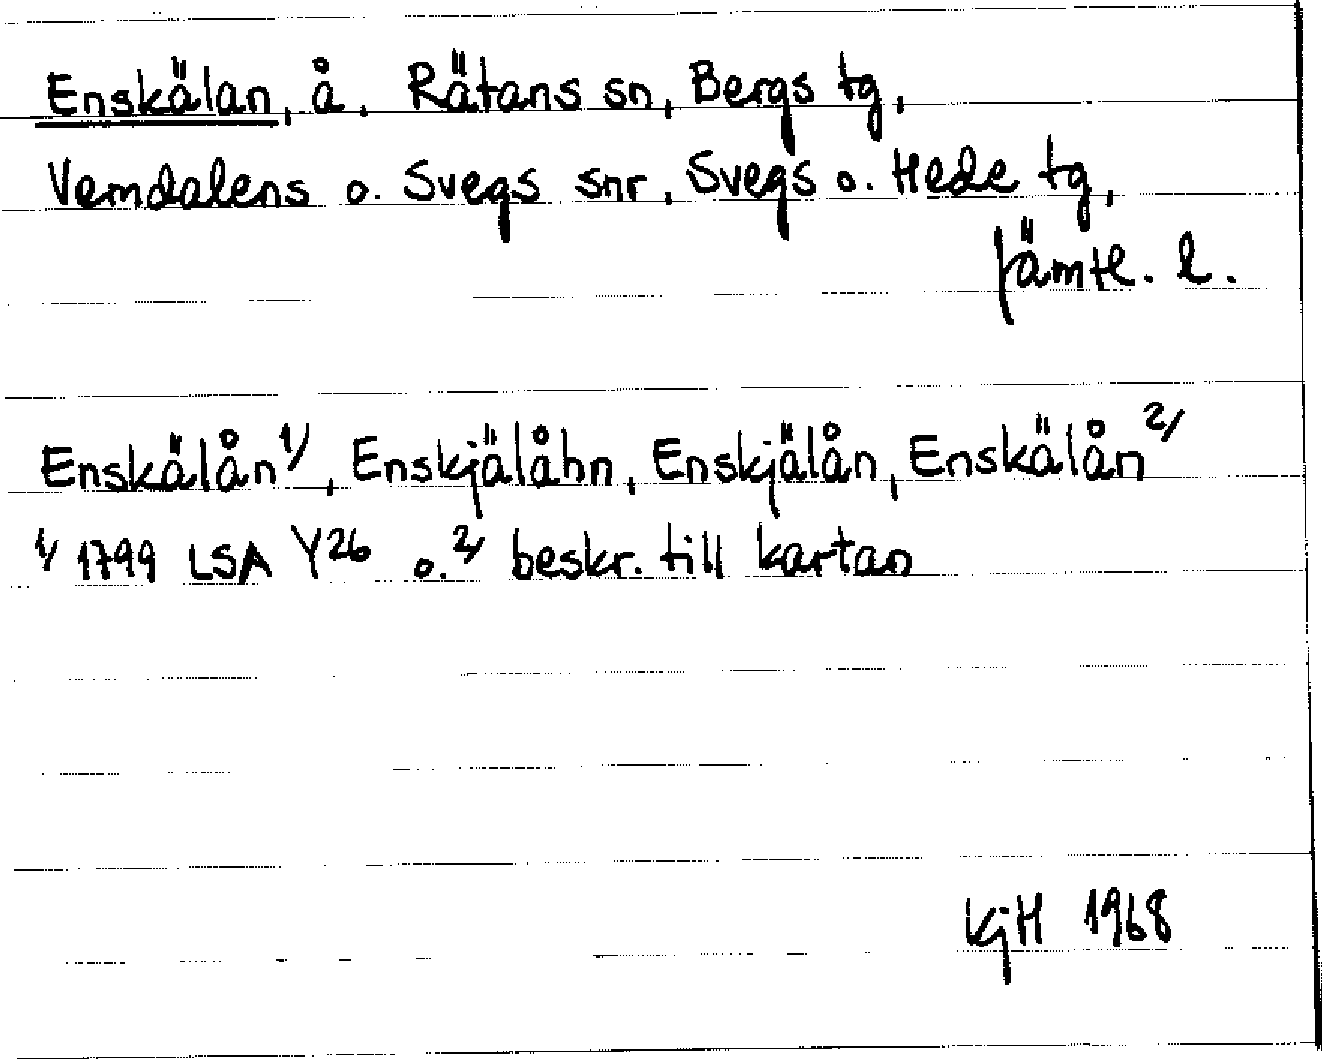 Enskälan, å. Rätans sn, Bergs tg,
Vemdalens o. Svegs snr, Svegs o. Hede tg,
Jämtl. l.
Enskälån 1/, Enskjälåhn, Enskjälån, Enskälån 2/
1/ 1799 LSA Y26 o. 2/ beskr. till kartan
KjH 1968